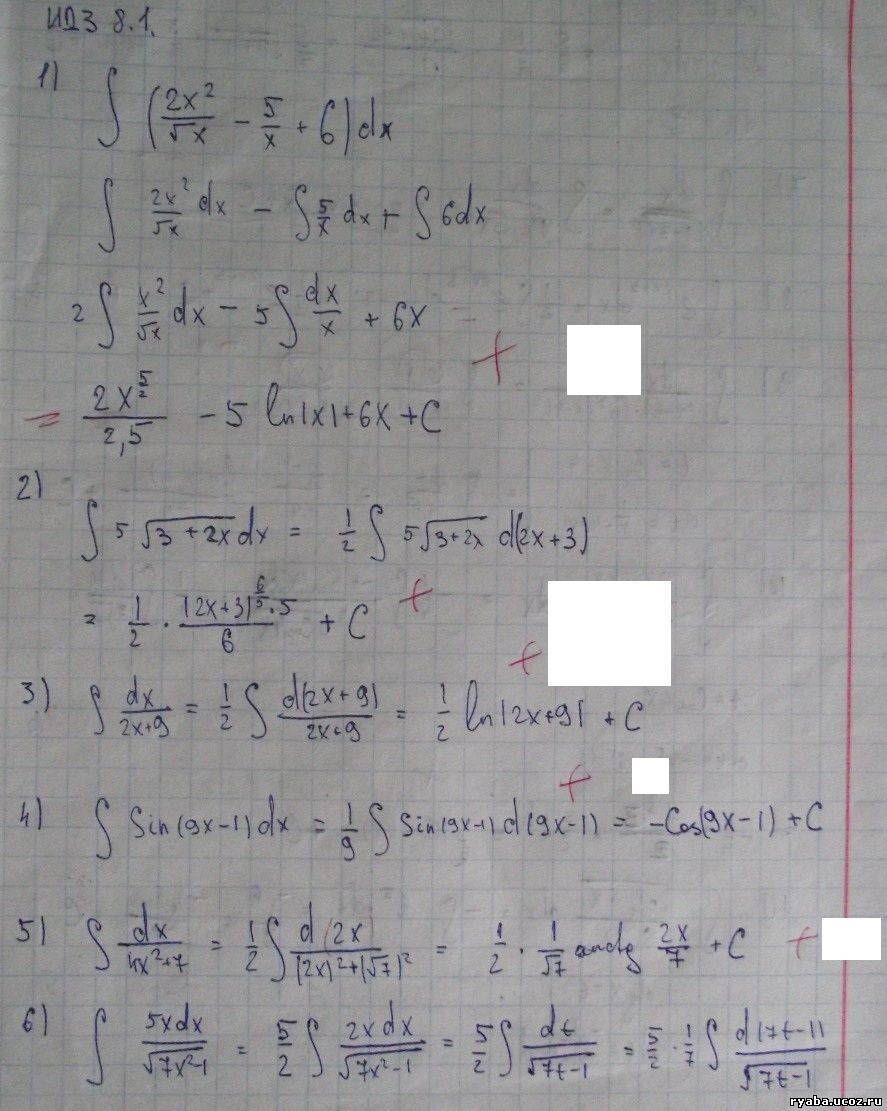 ИДЗ 8.1.
1) ∫ (2x²/√x − 5/x + 6) dx
∫ 2x²/√x dx − ∫ 5/x dx + ∫ 6dx
2 ∫ x²/√x dx − 5 ∫ dx/x + 6x
= 2x^(5/2)/2,5 − 5 ln|x| + 6x + C
2)
∫ 5 √(3+2x) dx = 1/2 ∫ 5 √(3+2x) d(2x+3)
= 1/2 · (2x+3)^(6/5) · 5/6 + C
3) ∫ dx/(2x+9) = 1/2 ∫ d(2x+9)/(2x+9) = 1/2 ln|2x+9| + C
4) ∫ Sin(9x−1) dx = 1/9 ∫ Sin(9x−1) d(9x−1) = −Cos(9x−1) + C
5) ∫ dx/(4x²+7) = 1/2 ∫ d(2x)/((2x)²+(√7)²) = 1/2 · 1/√7 arctg 2x/7 + C
6) ∫ 5xdx/√(7x²−1) = 5/2 ∫ 2xdx/√(7x²−1) = 5/2 ∫ dt/√(7t−1) = 5/2 · 1/7 ∫ d(7t−1)/√(7t−1)
ryaba.ucoz.ru